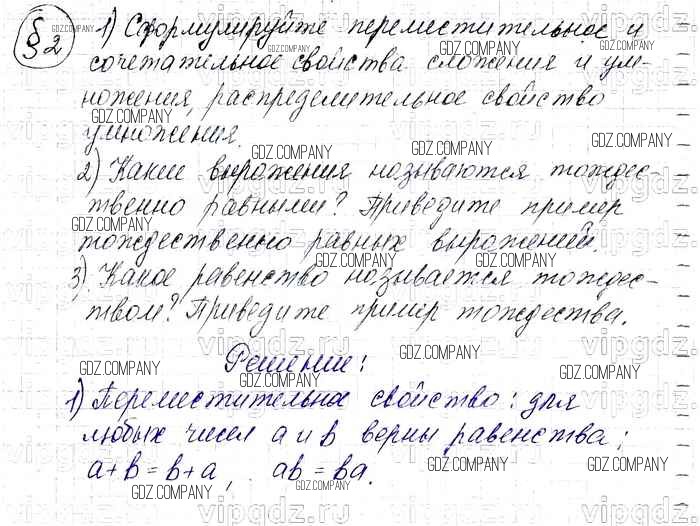 §2
1) Сформулируйте переместительное и
сочетательное свойства сложения и ум-
ножения, распределительное свойство
умножения.
2) Какие выражения называются тождес-
твенно равными? Приведите пример
тождественно равных выражений.
3) Какое равенство называется тождес-
твом? Приведите пример тождества.
Решение:
1) Переместительное свойство: для
любых чисел a и b верны равенства:
a+b=b+a, ab=ba.
GDZ.COMPANY
vipgdz.ru